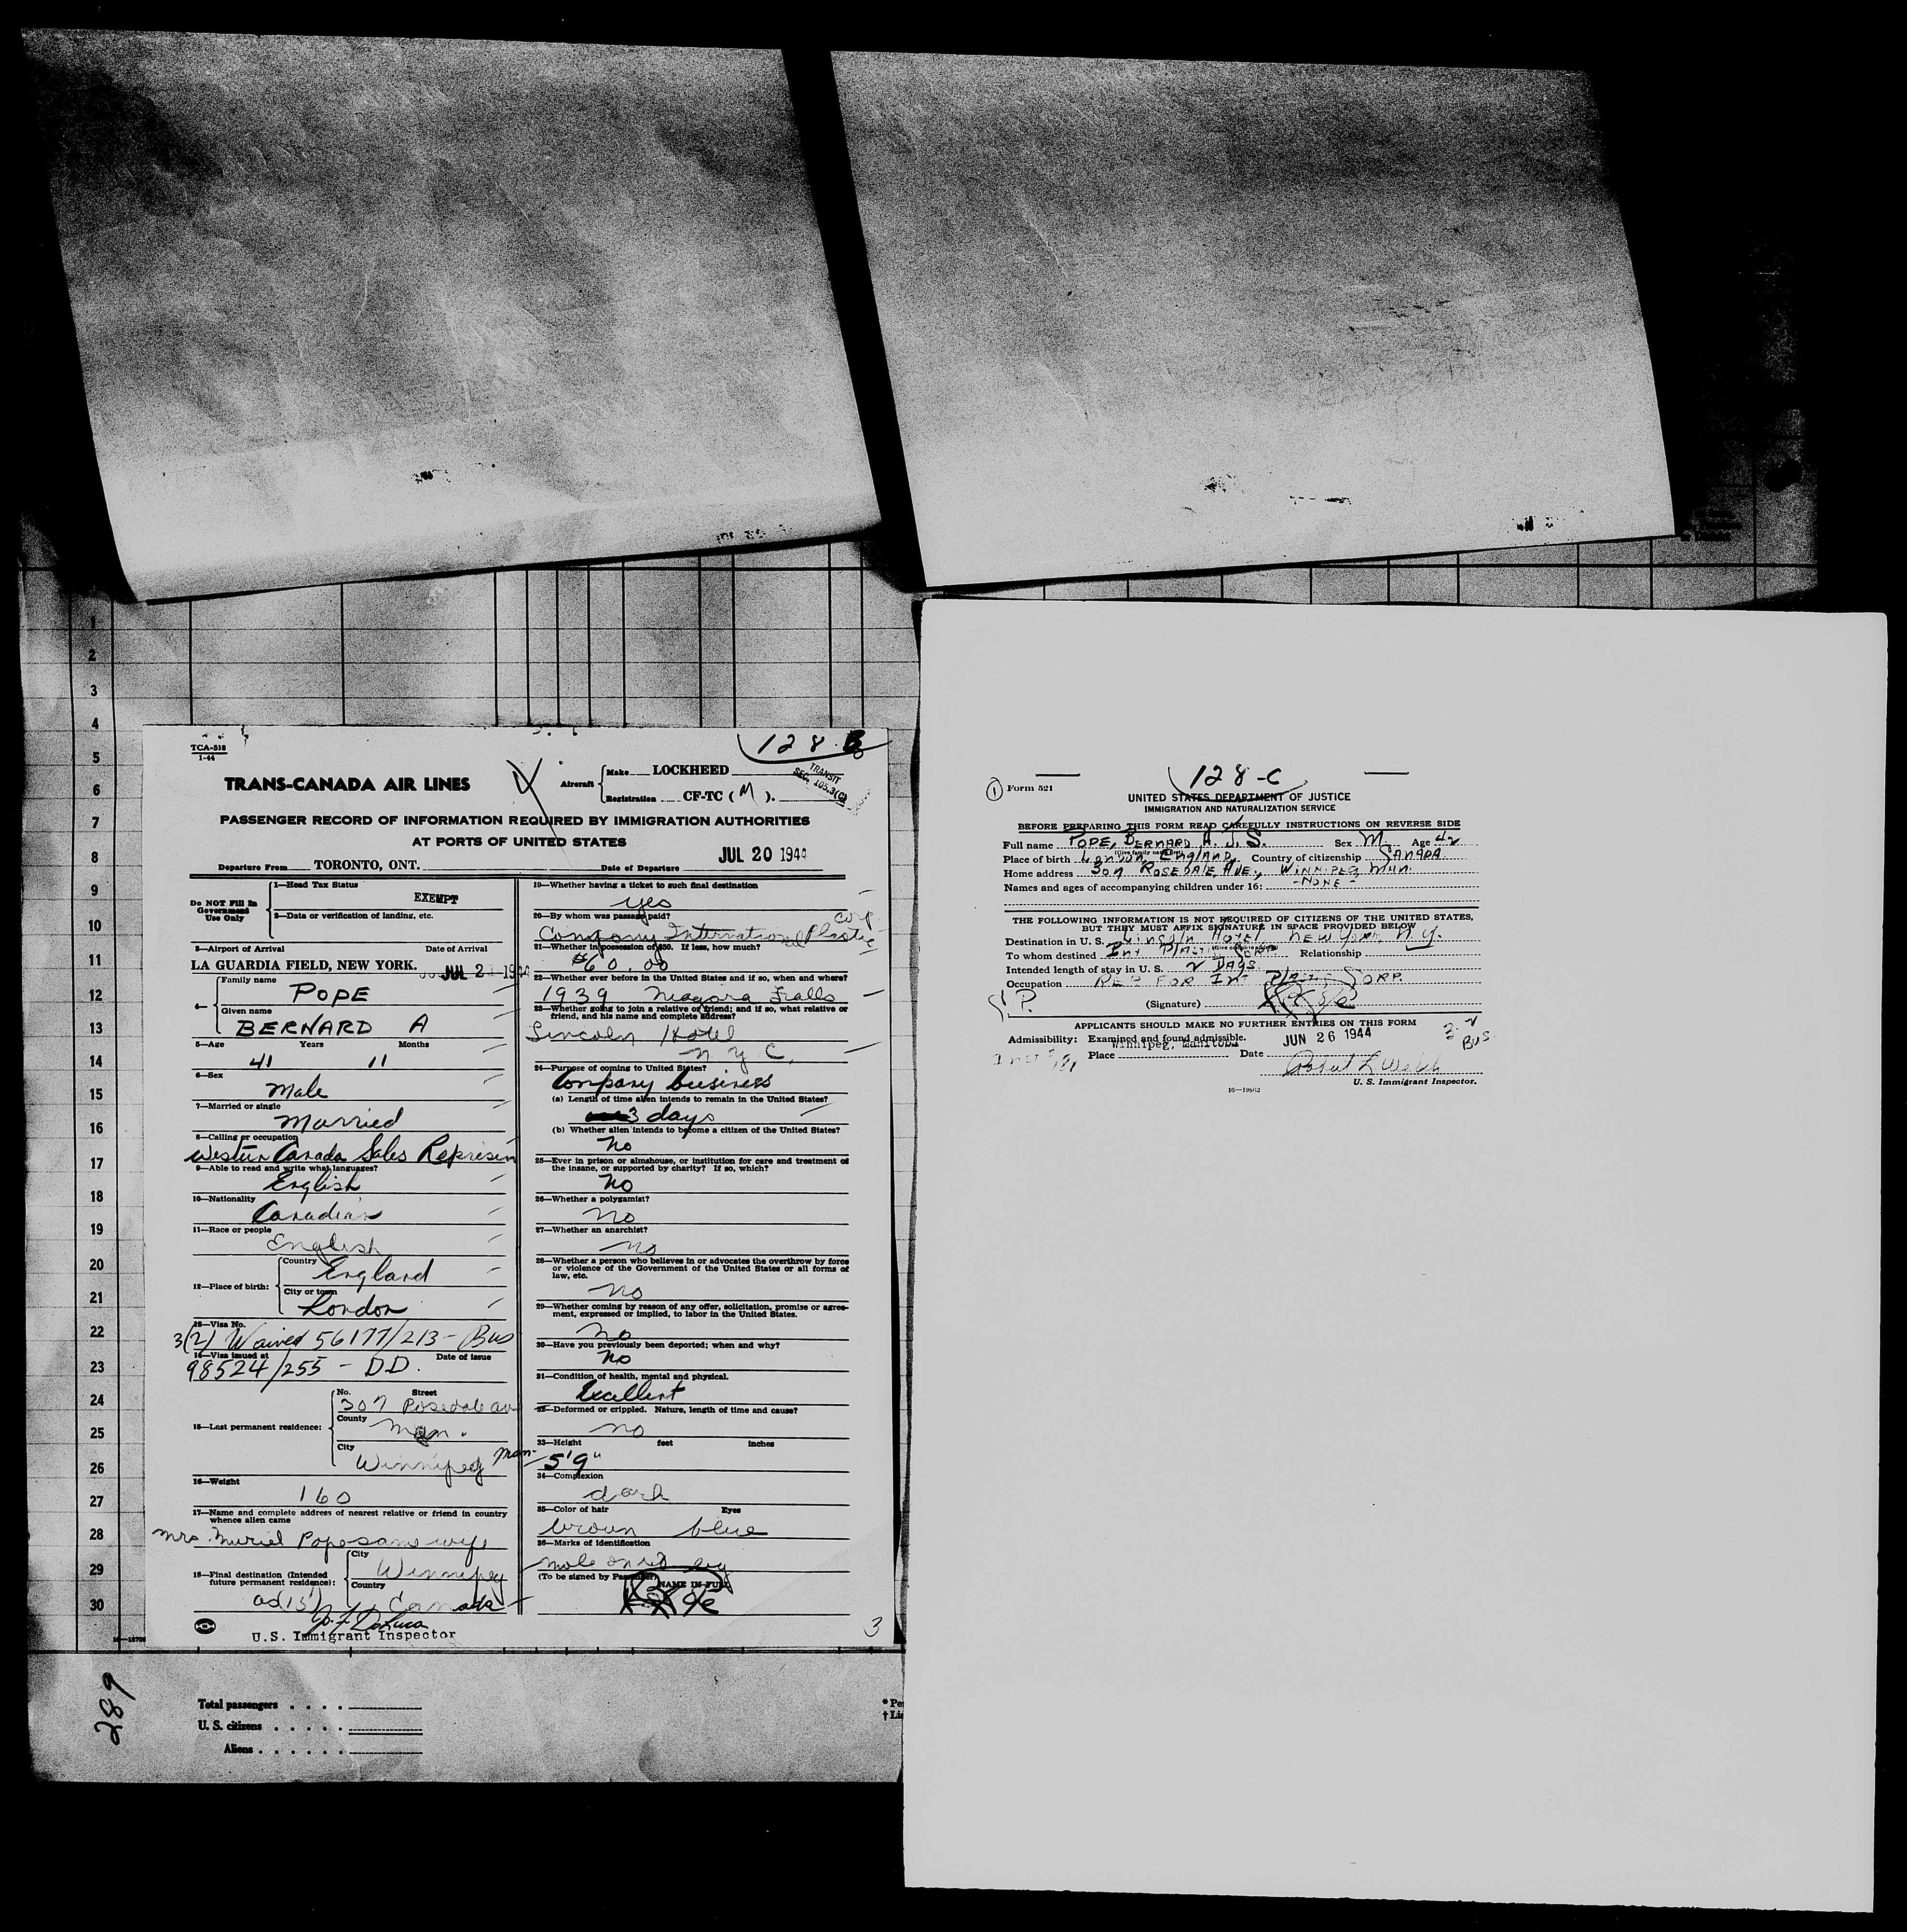 1
2
3
4
5
6
7
8
9
10
11
12
13
14
15
16
17
18
19
20
21
22
23
24
25
26
27
28
29
30
TCA-518
1-44
128-B
TRANS-CANADA AIR LINES
Aircraft
Make LOCKHEED
Registration CF-TC (M).
TRANSIT
SEC. 103.3(C)
PASSENGER RECORD OF INFORMATION REQUIRED BY IMMIGRATION AUTHORITIES
AT PORTS OF UNITED STATES
Departure From TORONTO, ONT. Date of Departure JUL 20 1944
Do NOT Fill In
Government
Use Only
1—Head Tax Status
EXEMPT
2—Data or verification of landing, etc.
3—Airport of Arrival Date of Arrival
LA GUARDIA FIELD, NEW YORK. JUL 2 1944
4—
Family name
POPE
Given name
BERNARD A
5—Age Years Months
41 11
6—Sex
Male
7—Married or single
Married
8—Calling or occupation
Western Canada Sales Represen
9—Able to read and write what languages?
English
10—Nationality
Canadian
11—Race or people
English
12—Place of birth:
Country
England
City or town
London
13—Visa No.
3(2) Waived 56177/213 - Bus
14—Visa issued at Date of issue
98524/255 - DD.
15—Last permanent residence:
No. Street
307 Rosedale av
County
Man.
City
Winnipeg Man-
16—Weight
160
17—Name and complete address of nearest relative or friend in country
whence alien came
Mrs. Muriel Pope same wife
18—Final destination (Intended
future permanent residence):
City
Winnipeg
Country
Canada
U.S. Immigrant Inspector
19—Whether having a ticket to such final destination
yes
20—By whom was passage paid?
Company International Plastic Corp
21—Whether in possession of $50. If less, how much?
$60.00
22—Whether ever before in the United States and if so, when and where?
1939 Niagara Falls
23—Whether going to join a relative or friend; and if so, what relative or
friend, and his name and complete address?
Lincoln Hotel
N Y C.
24—Purpose of coming to United States?
Company business
(a) Length of time alien intends to remain in the United States?
3 days
(b) Whether alien intends to become a citizen of the United States?
No
25—Ever in prison or almshouse, or institution for care and treatment of
the insane, or supported by charity? If so, which?
No
26—Whether a polygamist?
No
27—Whether an anarchist?
no
28—Whether a person who believes in or advocates the overthrow by force
or violence of the Government of the United States or all forms of
law, etc.
no
29—Whether coming by reason of any offer, solicitation, promise or agree-
ment, expressed or implied, to labor in the United States.
no
30—Have you previously been deported; when and why?
No
31—Condition of health, mental and physical.
Excellent
32—Deformed or crippled. Nature, length of time and cause?
no
33—Height feet inches
5'9"
34—Complexion
dark
35—Color of hair Eyes
brown blue
36—Marks of identification
mole on leg
(To be signed by Passenger) NAME IN FULL
3
289
Total passengers . . . .
U. S. citizens . . . . .
Aliens . . . . . .
128-C
1 Form 521
UNITED STATES DEPARTMENT OF JUSTICE
IMMIGRATION AND NATURALIZATION SERVICE
BEFORE PREPARING THIS FORM READ CAREFULLY INSTRUCTIONS ON REVERSE SIDE
Full name POPE, BERNARD A. J. S. Sex M Age 42
(Give family name first)
Place of birth London, England Country of citizenship CANADA
Home address 307 ROSEDALE AVE., WINNIPEG, Man.
Names and ages of accompanying children under 16: -NONE-
THE FOLLOWING INFORMATION IS NOT REQUIRED OF CITIZENS OF THE UNITED STATES,
BUT THEY MUST AFFIX SIGNATURE IN SPACE PROVIDED BELOW
Destination in U. S. Lincoln Hotel NEW YORK, N.Y.
To whom destined Int Plastic Corp Relationship
Intended length of stay in U. S. 2 DAYS
Occupation REP FOR INT PLASTIC CORP.
(Signature)
APPLICANTS SHOULD MAKE NO FURTHER ENTRIES ON THIS FORM
Admissibility: Examined and found admissible. JUN 26 1944
3-2
BUS.
Place Winnipeg, Manitoba Date
U. S. Immigrant Inspector.
16—19862